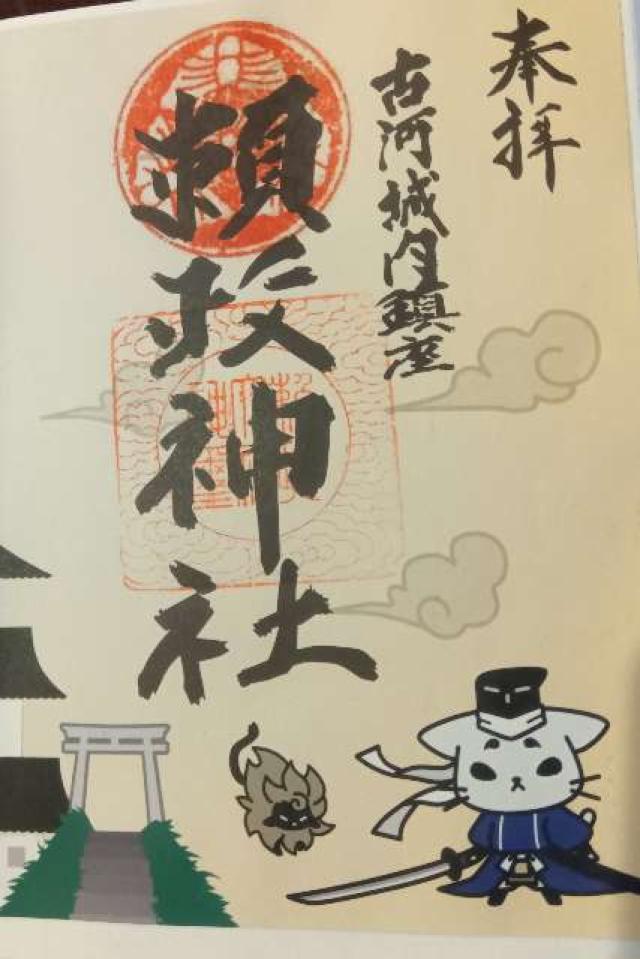 奉拝
古河城内鎮座
頼政神社